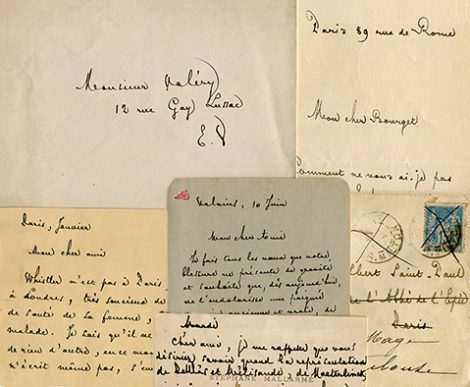 Monsieur Valéry
12 rue Gay Lussac
E. V
Paris 89 rue de Rome
Mon cher Bourget
Comment ne vous ai-je pas
Paris, Janvier
Mon cher ami
Whistler n'est pas à Paris
à Londres, très soucieux de
de santé de sa femme,
malade. Je sais qu'il ne
de rien d'autre, en ce mo
n'écrit même pas, s
Valvins, 10 Juin
Mon cher ami
Je fais tous les vœux que votre
blessure ne présente de gravité
et souhaite que, dès aujourd'hui,
ne
Mardi
Cher ami, je me rappelle que vous
désiriez savoir quand la représentation
de Pelléas et Mélisande, de Maeterlinck
STÉPHANE MALLARMÉ
lbert Saint-Paul
de l'Abbé de l'Epée
Paris
Mage
oulouse